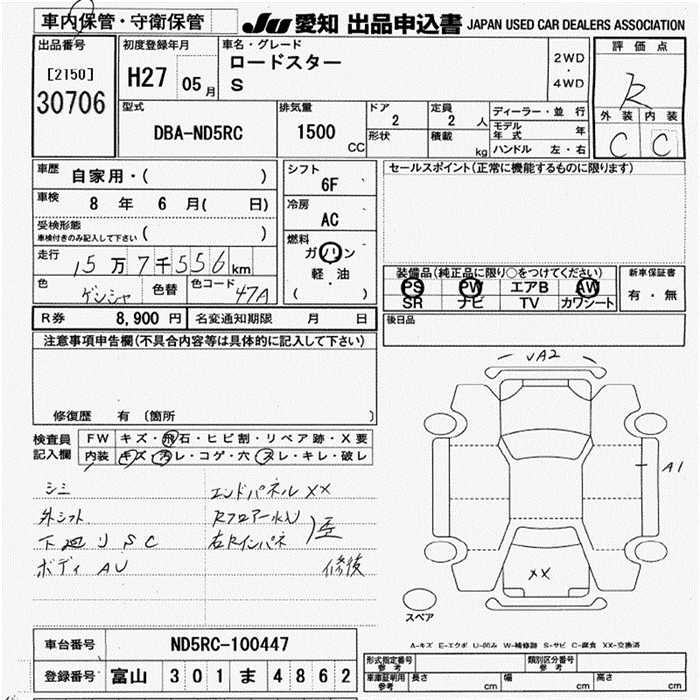 車内保管・守衛保管
JU 愛知 出品申込書 JAPAN USED CAR DEALERS ASSOCIATION
出品番号 初度登録年月 車名・グレード 評価点
[2150] ロードスター 2WD
・
30706 H27 05月 S 4WD R
型式 排気量 ドア 定員 ディーラー・並行 外装 内装
DBA-ND5RC 1500 CC 2 2人 モデル年式 年 C C
形状 積載 kg ハンドル 左・右
車歴 自家用・( ) シフト 6F セールスポイント(正常に機能するものに限ります)
車検 8年 6月( 日) 冷房 AC
受検形態
車検付きのみ記入して下さい ( ) 燃料
走行 15万7千556km ガソリン
軽・油
( )
装備品(純正品に限り○をつけてください) 新車保証書
色 ゲンシャ 色替 色コード 47A PS PW エアB AW 有・無
SR ナビ TV カワシート
R券 8,900円 名変通知期限 月 日 後日品
注意事項申告欄(不具合内容等は具体的に記入して下さい)
修復歴 有 〔箇所 〕
検査員記入欄 FW キズ・飛石・ヒビ割・リペア跡・X要
内装 キズ・汚レ・コゲ・穴・スレ・キレ・破レ
シミ エンドパネルXX
外シフト Rフロアー水入
下廻りSC 右Rインパネ
ボディAU 修復
UA2
A1
XX
スペア
A-キズ E-エクボ U-凹み W-補修跡 S-サビ C-腐食 XX-交換済
車台番号 ND5RC-100447
登録番号 富山 301 ま 4862
形式指定番号 参考 類別区分番号 参考
車庫証明用 参考 長さ cm 幅 cm 高さ cm